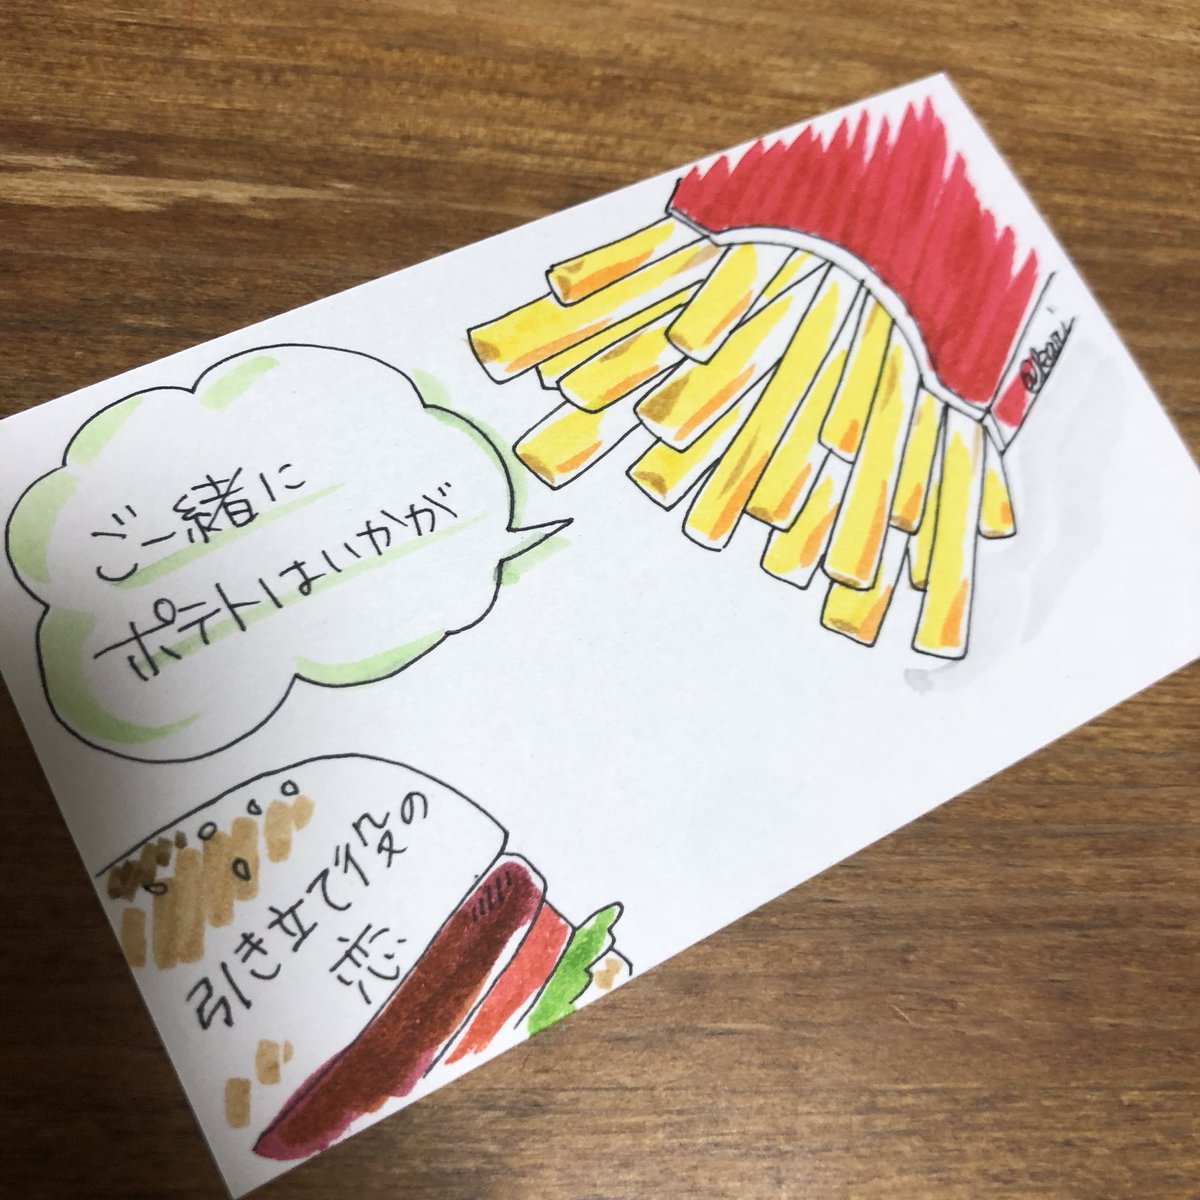 ご一緒に
ポテトはいかが
引き立て役の
恋